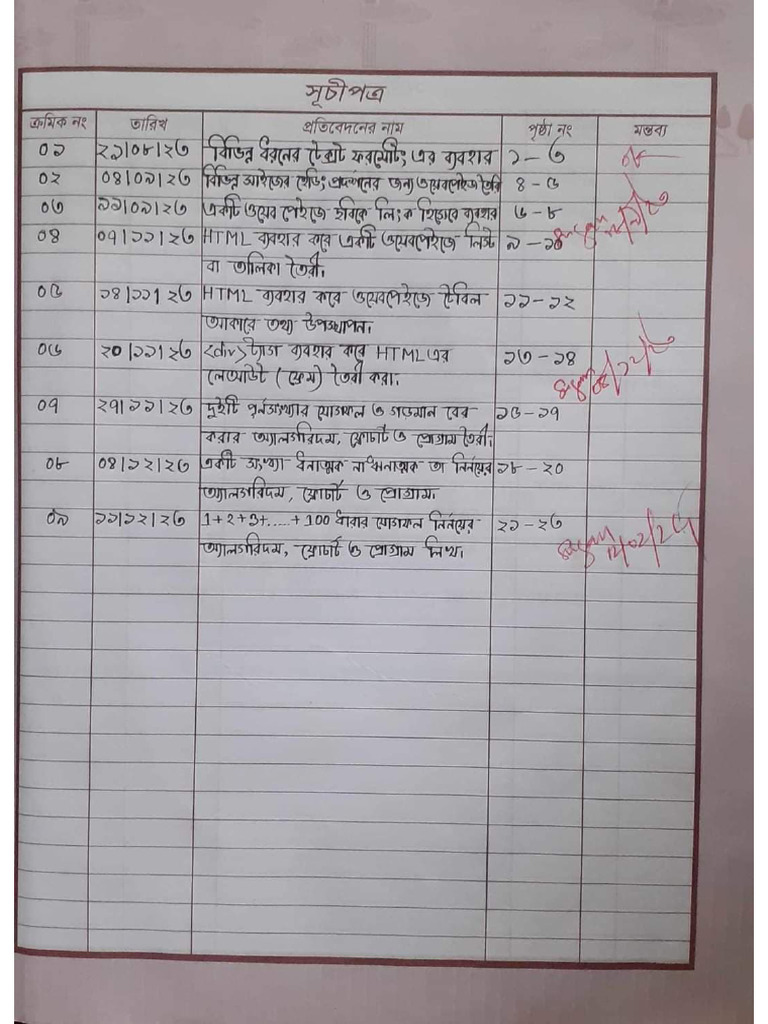 সূচীপত্র
ক্রমিক নং তারিখ প্রতিবেদনের নাম পৃষ্ঠা নং মন্তব্য
০১ ২১|০৮|২৩ বিভিন্ন ধরনের টেক্সট ফরমেটিং এর ব্যবহার ১-৩
০২ ০৪|০৯|২৩ বিভিন্ন সাইজের হেডিং প্রদর্শনের জন্য ওয়েবপেইজ তৈরি ৪-৫
০৩ ১১|০৯|২৩ একটি ওয়েব পেইজে ছবিকে লিংক হিসেবে ব্যবহার ৬-৮
০৪ ০৭|১১|২৩ HTML ব্যবহার করে একটি ওয়েবপেইজে লিস্ট ৯-১০
বা তালিকা তৈরী।
০৫ ১৪|১১|২৩ HTML ব্যবহার করে ওয়েবপেইজে টেবিল ১১-১২
আকারে তথ্য উপস্থাপন।
০৬ ২০|১১|২৩ <div> ট্যাগ ব্যবহার করে HTML এর ১৩-১৪
লেআউট (ফ্রেম) তৈরী করা।
০৭ ২৭|১১|২৩ দুইটি পূর্নসংখ্যার যোগফল ও গড়মান বের ১৫-১৭
করার অ্যালগরিদম, ফ্লোচার্ট ও প্রোগ্রাম তৈরী।
০৮ ০৪|১২|২৩ একটি সংখ্যা ধনাত্মক না ঋনাত্মক তা নির্নয়ের ১৮-২০
অ্যালগরিদম, ফ্লোচার্ট ও প্রোগ্রাম।
০৯ ১১|১২|২৩ 1+2+3+.....+100 ধারার যোগফল নির্নয়ের ২১-২৩
অ্যালগরিদম, ফ্লোচার্ট ও প্রোগ্রাম লিখ।